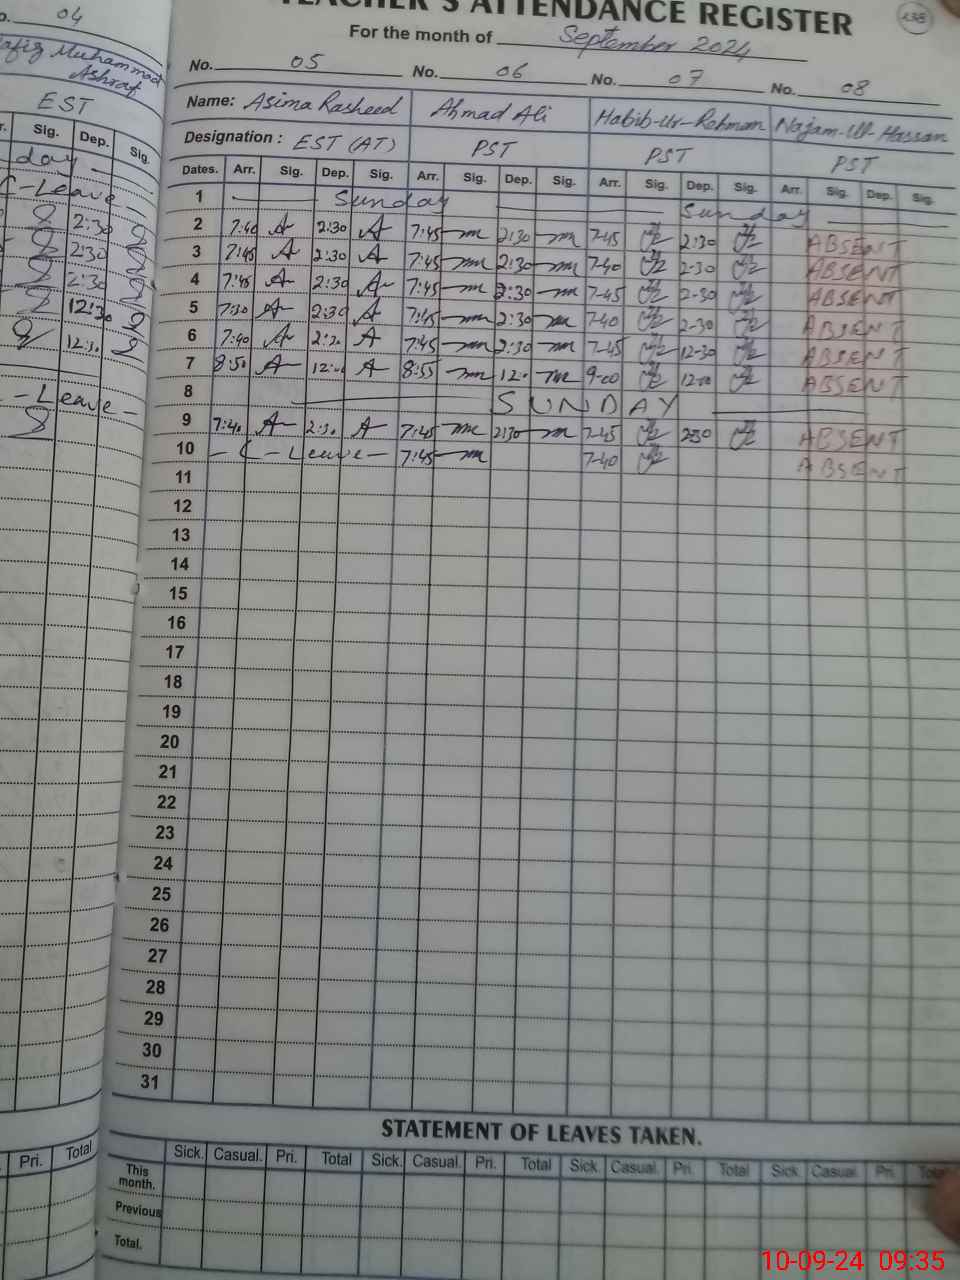 04
Hafiz Muhammad
Ashraf
EST
Sig. Dep. Sig.
day
C-Leave-
2:30
2:30
2:30
12:30
12:30
-Leave-
Pri. Total
TEACHER'S ATTENDANCE REGISTER
138
For the month of September 2024
No. 05 No. 06 No. 07 No. 08
Name: Asima Rasheed Ahmad Ali Habib-Ur-Rehman Najam-Ul-Hassan
Designation : EST (AT) PST PST PST
Dates. Arr. Sig. Dep. Sig. Arr. Sig. Dep. Sig. Arr. Sig. Dep. Sig. Arr. Sig. Dep. Sig.
1 Sunday Sunday
2 7:40 A 2:30 A 7:45 2:30 7-45 2:30 ABSENT
3 7:45 A 2:30 A 7:45 2:30 7-40 2-30 ABSENT
4 7:45 A 2:30 A 7:45 2:30 7-45 2-30 ABSENT
5 7:30 A 2:30 A 7:45 2:30 7-40 2-30 ABSENT
6 7:40 A A 7:45 2:30 7-45 12-30 ABSENT
7 8:50 A A 8:55 9-00 12-00 ABSENT
8 SUNDAY
9 7:40 A 2:30 A 7:45 2:30 7-45 2:30 ABSENT
10 - C-Leave- 7:45 7-40 ABSENT
11
12
13
14
15
16
17
18
19
20
21
22
23
24
25
26
27
28
29
30
31
STATEMENT OF LEAVES TAKEN.
Sick. Casual. Pri. Total Sick. Casual. Pri. Total Sick Casual. Pri. Total Sick Casual. Pri. Total
This month.
Previous
Total.
10-09-24 09:35